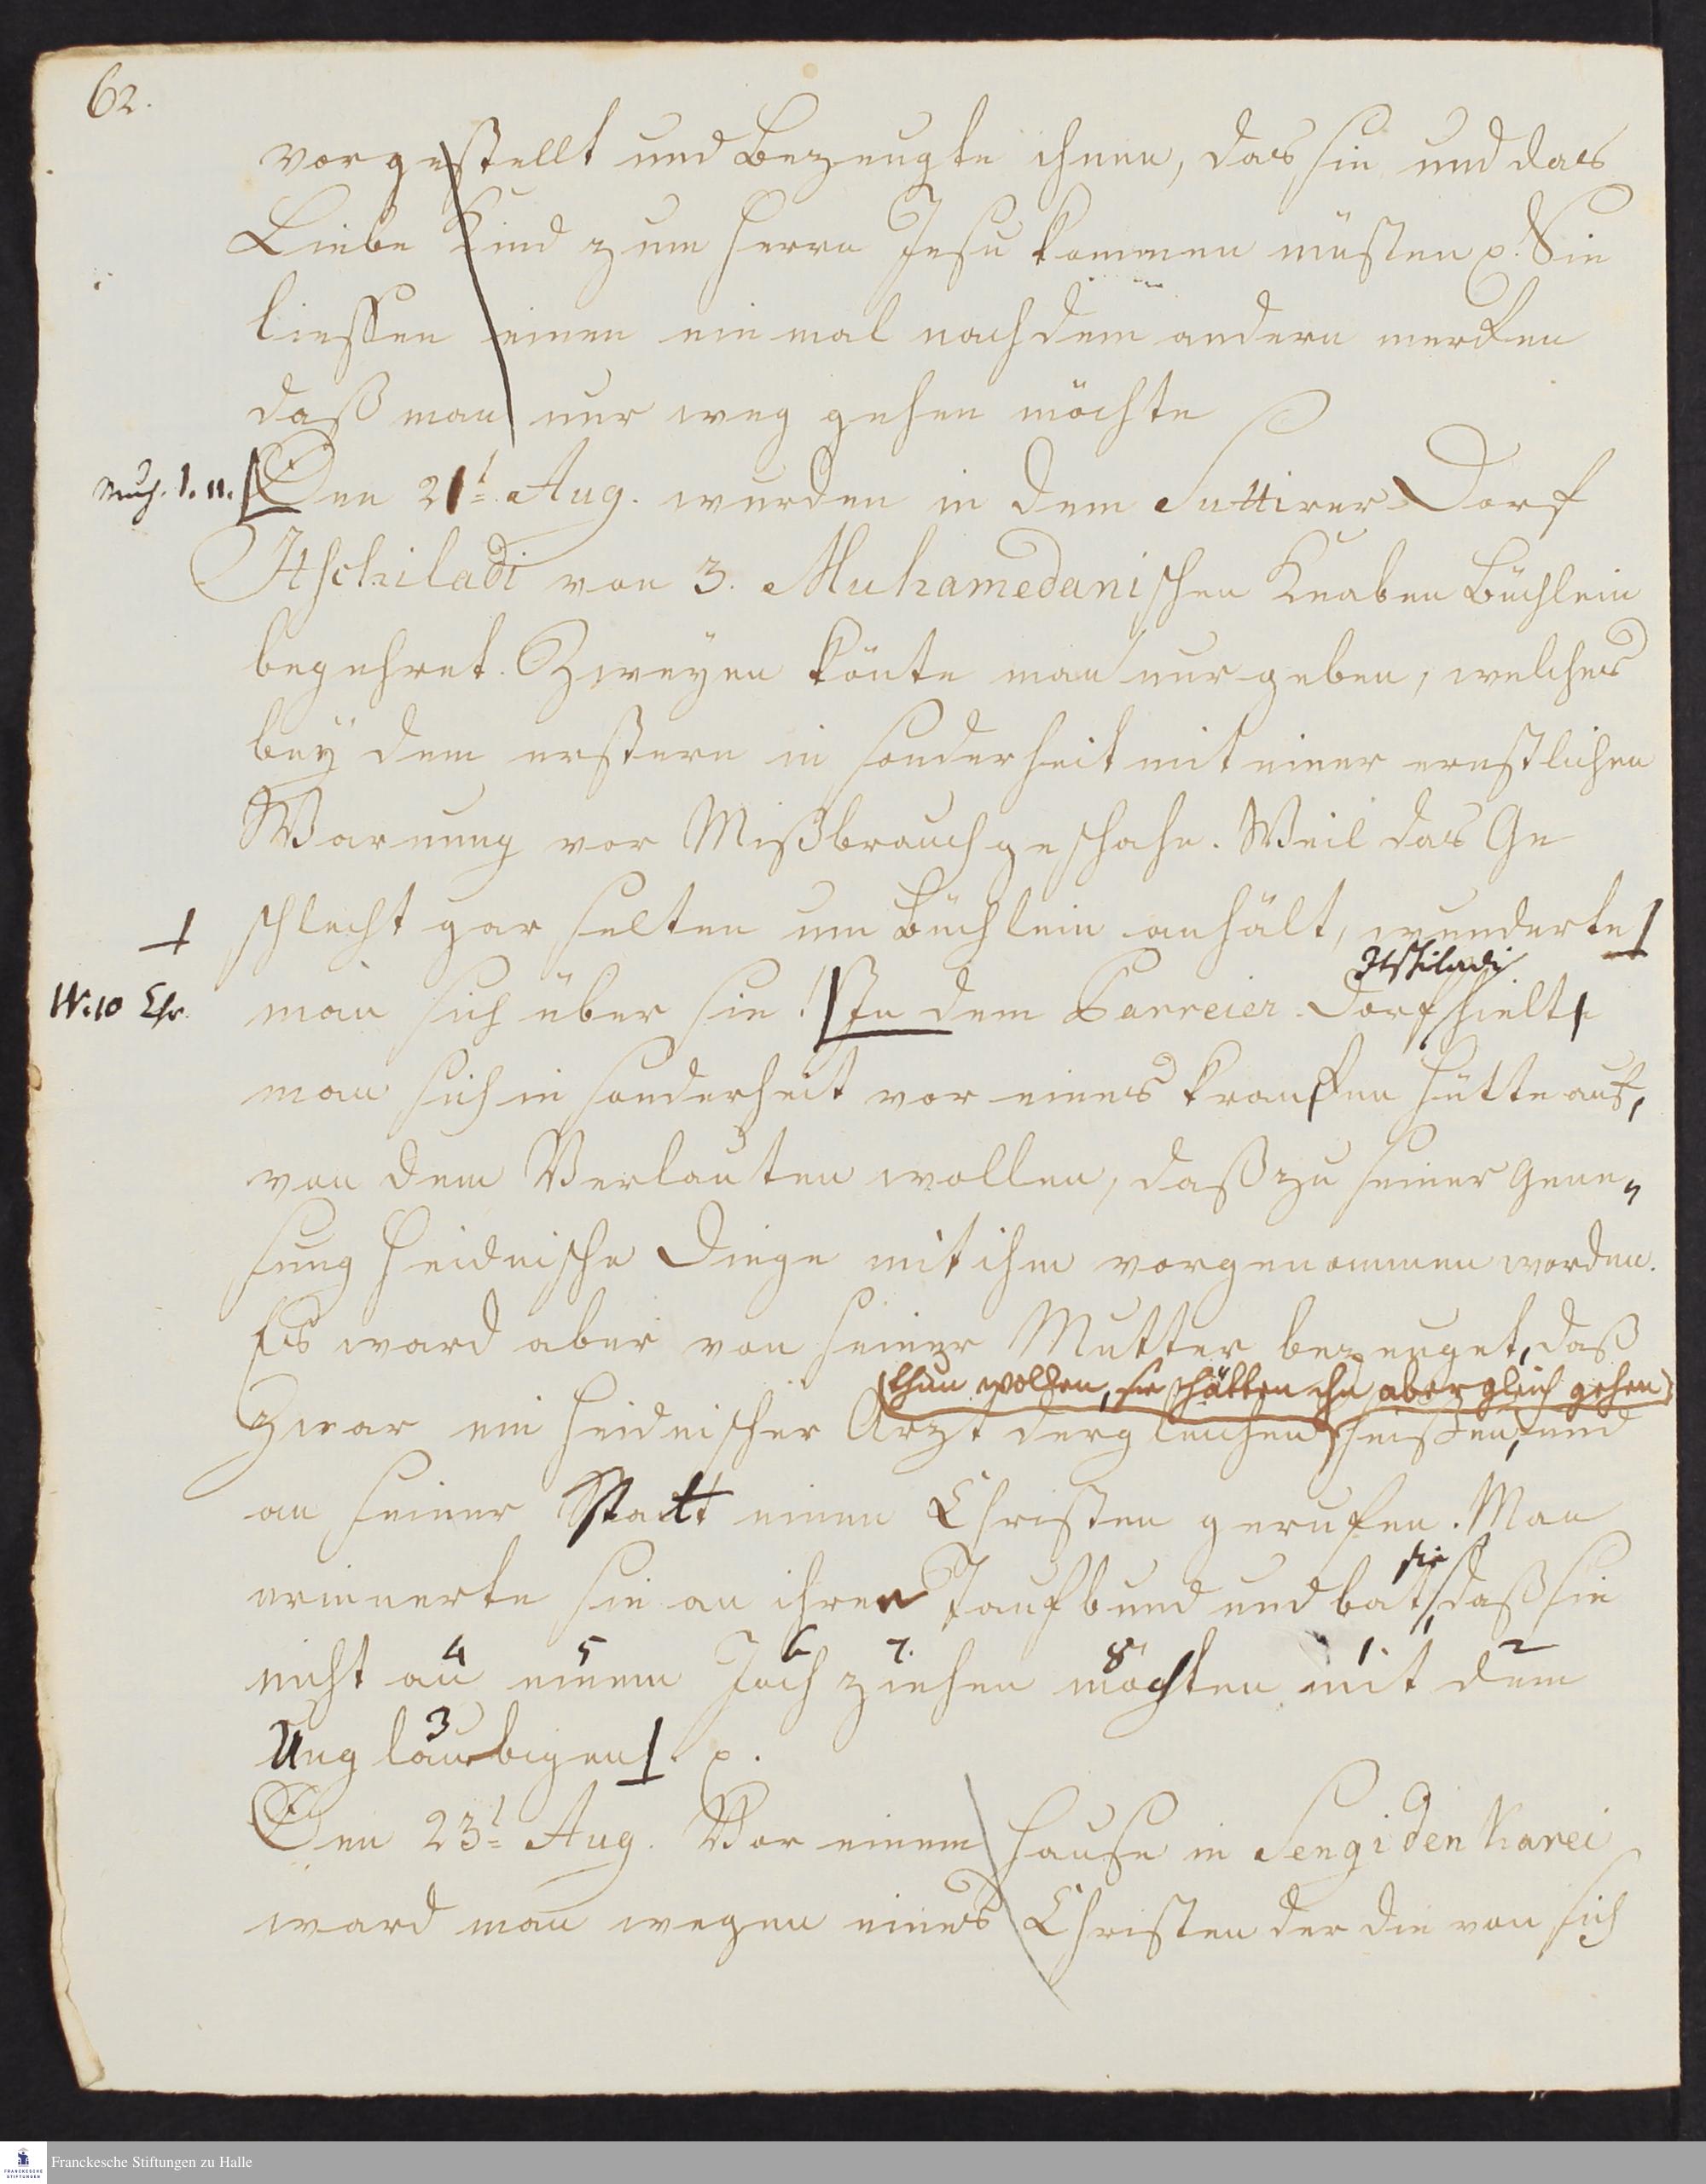 62.
vorgestellt und Bezeugte ihnen, das sie und das
Liebe Kind zum Herrn Jesu kommen müsten p. Sie
liessen einen ein mal nach dem andern merken
daß man nur weg gehen möchte
Muh. 1. 11.
Den 21t Aug. wurden in dem Suttirer Dorf
Itschiladi von 3. Muhamedanischen Knaben Büchlein
begehret. Zweyen könte man nur geben, welches
bey dem erstern in sonderheit mit einer ernstlichen
Warnung vor Mißbrauch geschahe. Weil das Ge
schlecht gar selten um Büchlein anhält, wunderte
Itschiladi
W. 10 Chr.
man sich über sie! In dem Parreier Dorf hielte
man sich in sonderheit vor eines kranken Hütte auf,
von dem Verlauten wollen, daß zu seiner Gene„
sung Heidnische Dinge mit ihm vorgenommen worden.
Es ward aber von seiner Mutter bezeuget, daß
thun wollen, sie hätten ihn aber gleich gehen
zwar ein heidnischer Arzt dergleichen heißen, und
an seiner Statt einen Christen gerufen. Man
sie
erinnerte sie an ihren Taufbund und bat, daß sie
4 5 6 7. 8 1 2
nicht an einem Joch ziehen möchten mit dem
3
Ungläubigen. p.
Den 23t Aug. Vor einem Hause in Sengidenkarei
ward man wegen eines Christen der die von sich
Franckesche Stiftungen zu Halle
FRANCKESCHE STIFTUNGEN